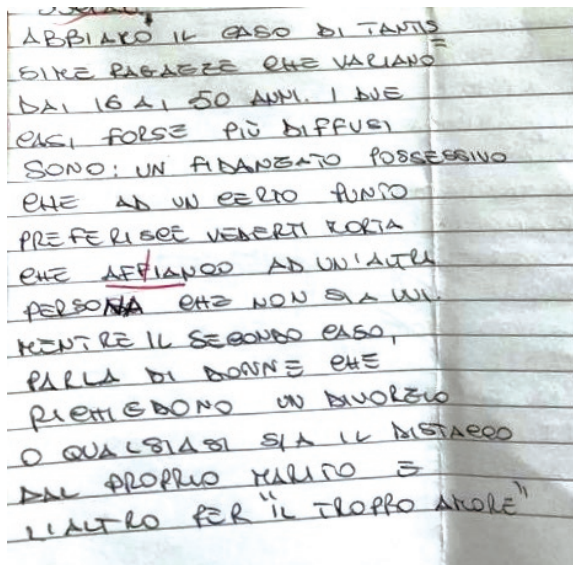 ABBIAMO IL CASO DI TANTIS=
SIME RAGAZZE CHE VARIANO
DAI 16 AI 50 ANNI. I DUE
CASI FORSE PIÙ DIFFUSI
SONO: UN FIDANZATO POSSESSIVO
CHE AD UN CERTO PUNTO
PREFERISCE VEDERTI MORTA
CHE AFFIANCO AD UN'ALTRA
PERSONA CHE NON SIA LUI.
MENTRE IL SECONDO CASO,
PARLA DI DONNE CHE
RICHIEDONO UN DIVORZIO
O QUALSIASI SIA IL DISTACCO
DAL PROPRIO MARITO E
L'ALTRO PER "IL TROPPO AMORE"